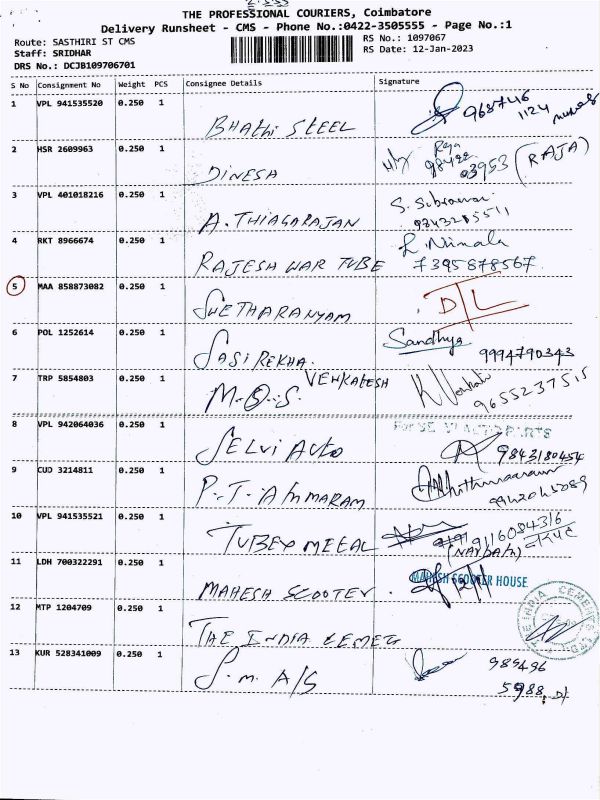 THE PROFESSIONAL COURIERS, Coimbatore
Delivery Runsheet - CMS - Phone No.:0422-3505555 - Page No.:1
Route: SASTHIRI ST CMS
RS No.: 1097067
Staff: SRIDHAR
RS Date: 12-Jan-2023
DRS No.: DCJB109706701
S No Consignment No Weight PCS Consignee Details Signature
1 VPL 941535520 0.250 1 BHathi STEEL
1124
2 HSR 2609963 0.250 1 DINESH
Raja
(RAJA)
03953
3 VPL 401018216 0.250 1 A.THIAGARAJAN
4 RKT 8966674 0.250 1 RAJESH WAR TUBE
7395878567
5 MAA 858873082 0.250 1 SWETHARANYAM D/L
6 POL 1252614 0.250 1 SASI REKHA. Sandhya
9994790343
7 TRP 5854803 0.250 1 M.O.S. VENKATESH
9655237515
8 VPL 942064036 0.250 1 SELVI Auto
AUTO PARTS
9843180454
9 CUD 3214811 0.250 1 P.T. AMMARAM
10 VPL 941535521 0.250 1 TUBEX METAL
11 LDH 700322291 0.250 1 MAHESH SCOOTER.
MAHESH SCOOTER HOUSE
12 MTP 1204709 0.250 1 THE INDIA CEMET
THE INDIA CEMENTS LTD.
13 KUR 528341009 0.250 1 S.m. A/S
989496
5988